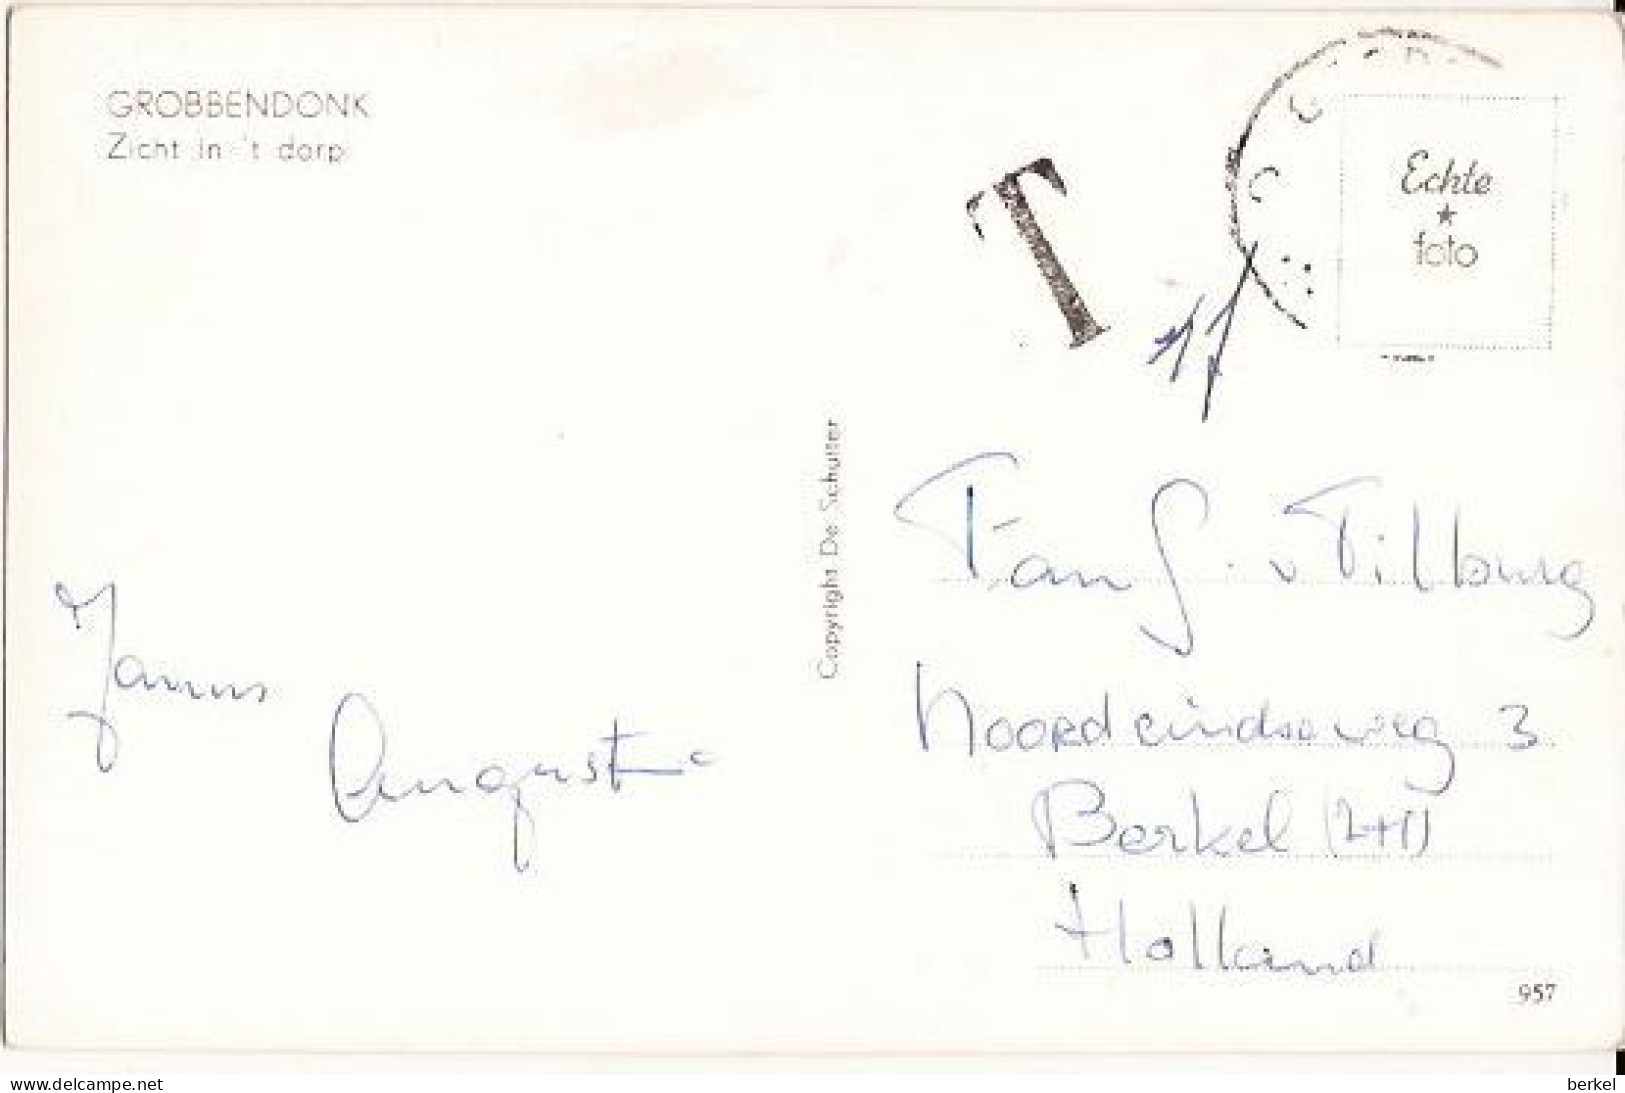 GROBBENDONK
Zicht in 't dorp
T
Echte
foto
11
Copyright De Schutter
Fam G. v Tilburg
Noordeindseweg 3
Berkel (Z+H)
Holland
Jannus
August
957
www.delcampe.net
berkel